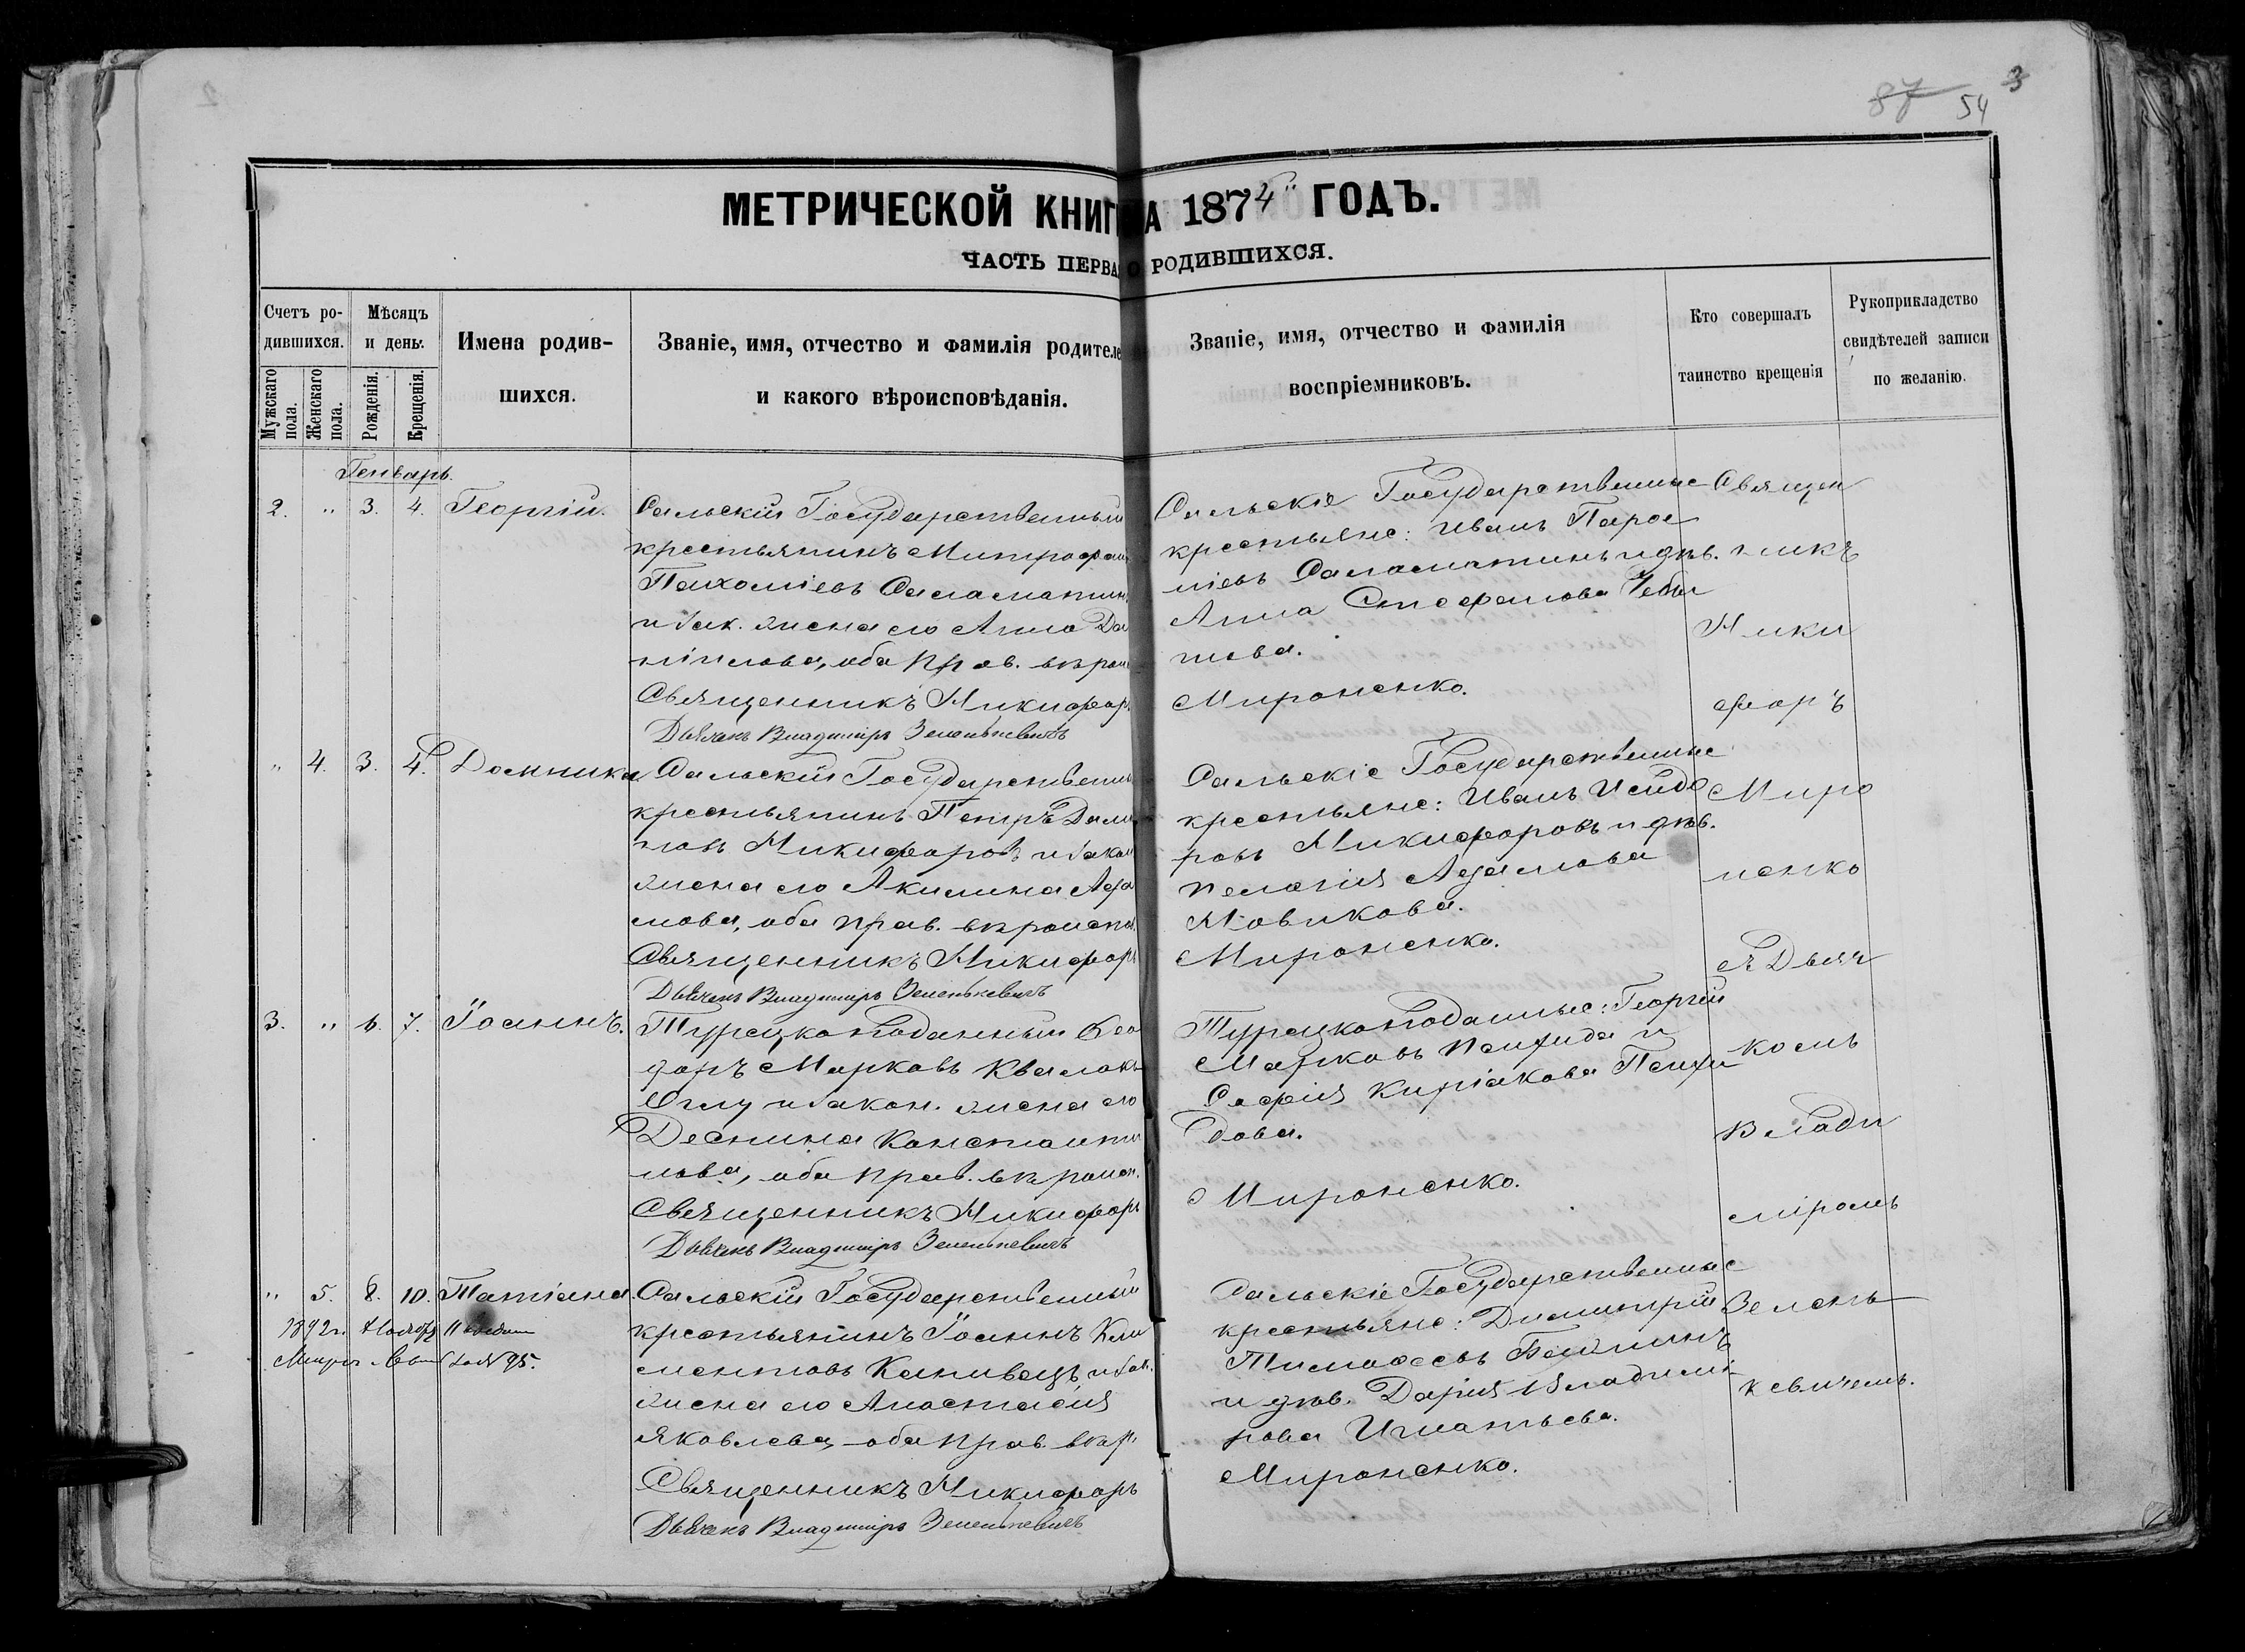 87 54 3
МЕТРИЧЕСКОЙ КНИГ А 1874 ГОДЪ.
ЧАСТЬ ПЕРВА О РОДИВШИХСЯ.
Счетъ ро-
дившихся.
Мужскаго пола.
Женскаго пола.
Мѣсяцъ
и день.
Рожденія.
Крещенія.
Имена родив-
шихся.
Званіе, имя, отчество и фамилія родителе
и какого вѣроисповѣданія.
Званіе, имя, отчество и фамилія
воспріемниковъ.
Кто совершалъ
таинство крещенія
Рукоприкладство
свидѣтелей записи
по желанію.
Генварь.
2. " 3. 4. Георгій.
Сальскій Государственный
крестьянинъ Митрофан
Пахоміевъ Саламатин
и зак. жена его Анна Да
ніилова, оба прав. вѣроис
Священникъ Никифоръ
Дьячекъ Владиміръ Зеленькевичъ
Сальскіе Государственные
крестьяне: Иванъ Парѳе
ніевъ Саламатинъ и дѣв.
Анна Стефанова Чебы
шева.
Мироненко.
" 4. 3. 4. Домника
Сальскій Государственны
крестьянинъ Петръ Дани
ловъ Никифоровъ и закон
жена его Акилина Ада
мова, оба прав. вѣроиспов.
Священникъ Никифоръ
Дьячекъ Владиміръ Зеленькевичъ
Сальскіе Государственные
крестьяне: Иванъ Исидо
ровъ Никифоровъ и дѣв.
Пелагія Адамова
Новикова.
Мироненко.
3. " 6. 7. Іоаннъ.
Турецкоподанный Ѳео
доръ Марковъ
Оглу и закон. жена его
Деспина Константи
нова, оба прав. вѣроисп.
Священникъ Никифоръ
Дьячекъ Владиміръ Зеленькевичъ
Турецкоподанные: Георгій
Марковъ и
Софія Киріакова
дова.
Мироненко.
" 5. 8. 10. Татіана
1892г. Ноября
95.
Сальскій Государственный
крестьянинъ Іоаннъ Кли
ментовъ Канивецъ и зак.
жена его Анастасія
Яковлева, оба прав. вѣр.
Священникъ Никифоръ
Дьячекъ Владиміръ Зеленькевичъ
Сальскіе Государственные
крестьяне: Димитрій
Тимоѳеевъ
и дѣв. Дарія Владимі
рова Игнатьева.
Мироненко.
Священ
никъ
Ники
форъ
Миро
ненко
съ Дьяч
комъ
Влади
міромъ
Зелень
кевичемъ.